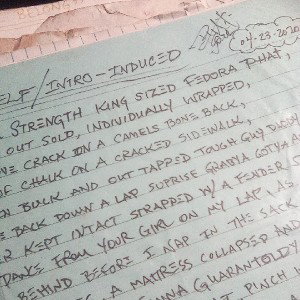 04-23-2020
ELF/INTRO-INDUCED
STRENGTH KING SIZED FEDORA PHAT,
OUT SOLD, INDIVIDUALLY WRAPPED,
NE CRACK ON A CAMELS BONE BACK,
OF CHALK ON A CRACKED SIDEWALK,
N BULK AND OUT TAPPED TOUGH GUY DADDY
E BACK DOWN A LAP SUPRISE GRABYA GOTYA A
R KEPT INTACT STRAPPED W/ A FENDER
DANCE FROM YOUR GIRL ON MY LAP AS
BEHIND BEFORE I NAP IN THE SACK
A MATTRESS COLLAPSED AND
NNA GUARANTOLDY
T PINCH